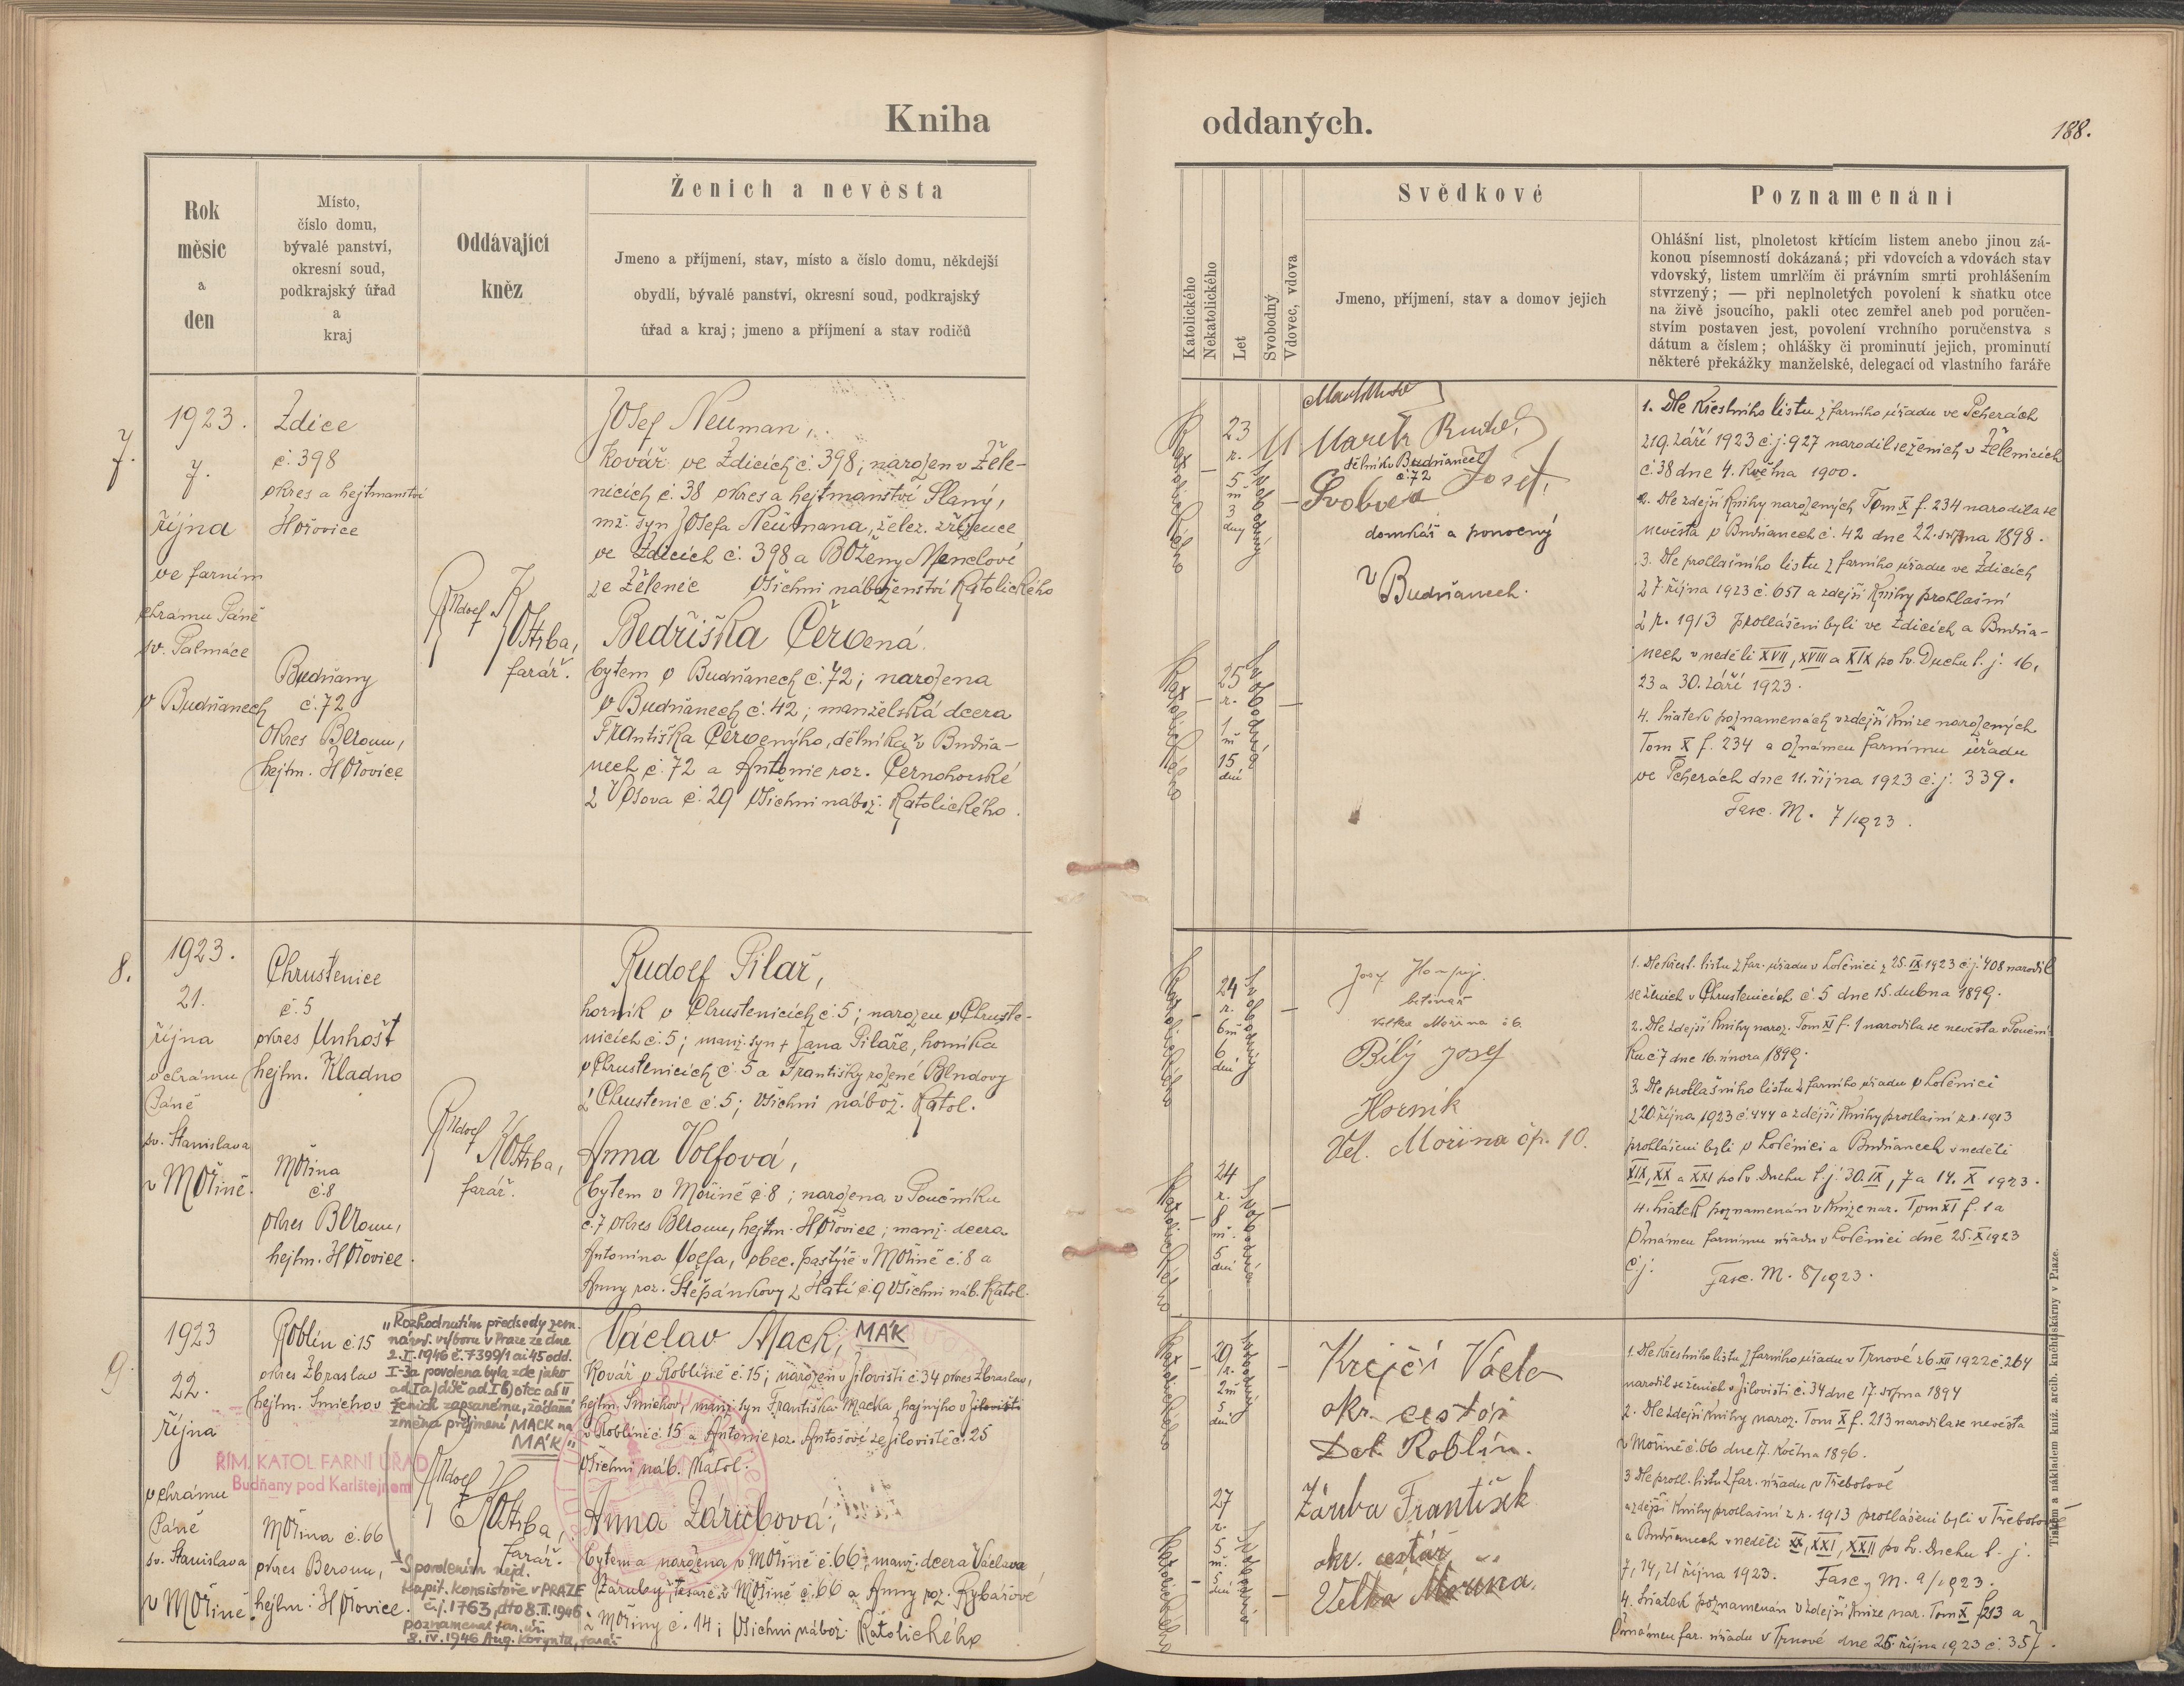 Kniha
oddaných.
188.
Rok
měsíc
a
den
Místo,
číslo domu,
bývalé panství,
okresní soud,
podkrajský úřad
a
kraj
Oddávající
kněz
Ženich a nevěsta
Jmeno a příjmení, stav, místo a číslo domu, někdejší
obydlí, bývalé panství, okresní soud, podkrajský
úřad a kraj; jmeno a příjmení a stav rodičů
Katolického
Nekatolického
Let
Svobodný
Vdovec, vdova
Svědkové
Jmeno, příjmení, stav a domov jejich
Poznamenání
Ohlášní list, plnoletost křtícím listem anebo jinou zá-
konou písemností dokázaná; při vdovcích a vdovách stav
vdovský, listem umrlčím či právním smrti prohlášením
stvrzený; — při neplnoletých povolení k sňatku otce
na živě jsoucího, pakli otec zemřel aneb pod poručen-
stvím postaven jest, povolení vrchního poručenstva s
dátum a číslem; ohlášky či prominutí jejich, prominutí
některé překážky manželské, delegací od vlastního faráře
7.
1923.
7.
října
ve farním
chrámu Páně
sv. Palmácе
v Budňanech
Zdice
č. 398
okres a hejtmanství
Hořovice
Budňany
č. 72
okres Beroun,
hejtm. Hořovice
Rudolf Kostrba,
farář.
Josef Neuman,
kovář ve Zdicích č. 398; narozen v Žele-
nicích č. 38 okres a hejtmanství Slaný,
mž. syn Josefa Neumana, želez. zřízence
ve Zdicích č. 398 a Boženy Menclové
ze Želenic Všichni náboženství Katolického
Bedřiška Červená
bytem v Budňanech č. 72; narozena
v Budňanech č. 42; manželská dcera
Františka Červenýho, dělníka v Budňa-
nech č. 72 a Antonie roz. Černohorské
z Vosova č. 29 Všichni nábož. Katolického.
Katolického
23
r.
5
m
3
dny
Svobodný
Katolického
25
r.
1
m
15
dní
Svobodná
Marek Rudolf
dělník Budňanech
č. 72
Svoboda Josef
domkář a ponocný
v Budňanech.
1. Dle Křestního listu z farního úřadu ve Pcherách
z 19. září 1923 č. j. 927 narodil se ženich v Želenicích
č. 38 dne 4. května 1900.
2. Dle zdejší Knihy narozených Tom X f. 234 narodila se
nevěsta v Budňanech č. 42 dne 22. srpna 1898.
3. Dle prohlašního listu z farního úřadu ve Zdicích
z 7. října 1923 č. 657 a zdejší Knihy prohlašní
z r. 1913 prohlášeni byli ve Zdicích a Budňa-
nech v neděli XVII, XVIII a XIX po sv. Duchu t. j. 16,
23 a 30. září 1923.
4. Sňatek poznamenán v zdejší Knize narozených
Tom X f. 234 a oznámen farnímu úřadu
ve Pcherách dne 11. října 1923 č. j. 339.
Fasc. M. 7/1923.
8.
1923.
21.
října
v chrámu
Páně
sv. Stanislava
v Mořině.
Chrustenice
č. 5
okres Unhošť
hejtm. Kladno
Mořina
č. 8
okres Beroun,
hejtm. Hořovice.
Rudolf Kostrba,
farář.
Rudolf Pilař,
horník v Chrustenicích č. 5; narozen v Chruste-
nicích č. 5; manž. syn † Jana Pilaře, horníka
v Chrustenicích č. 5 a Františky rozené
z Chrustenic č. 5; Všichni nábož. Katol.
Anna Volfová,
bytem v Mořině č. 8; narozena v Poučníku
č. 7 okres Beroun, hejtm. Hořovice; manž. dcera
Antonína Volfa, obec. pastýře v Mořině č. 8 a
Anny roz. Štěpánkovy z Hatí č. 9 Všichni náb. Katol.
Katolického
24
r.
6 m
6
dní
Svobodný
Katolického
24
r.
8
m.
5
dní
Svobodná
Josef
Velká Mořina č 6.
Bílý Josef
Horník
Vel. Mořina čp. 10.
1. Dle křest. listu z far. úřadu v Loděnici z 25. IX 1923 č. j. 408 narodil
se ženich v Chrustenicích č. 5 dne 15. dubna 1899.
2. Dle zdejší Knihy naroz. Tom XI f. 1 narodila se nevěsta v Pouční-
ku č 7 dne 16. února 1899.
3. Dle prohlašního listu z farního úřadu v Loděnici
z 20. října 1923 č. 444 a zdejší Knihy prohlašní z r. 1913
prohlášeni byli v Loděnici a Budňanech v neděli
XIX, XX a XXI po sv. Duchu t. j. 30. IX, 7 a 14. X 1923.
4. Sňatek poznamenán v Knize nar. Tom XI f. 1 a
oznámen farnímu úřadu v Loděnici dne 25. X 1923
č. j.
Fasc. M. 8/1923.
9.
1923
22.
října
v chrámu
Páně
sv. Stanislava
v Mořině.
Roblín č. 15
okres Zbraslav
hejtm. Smíchov
Mořina č. 66
okres Beroun,
hejtm. Hořovice.
ŘÍM. KATOL FARNÍ ÚŘAD
Budňany pod Karlštejnem
„Rozhodnutím předsedy zem.
národ. výboru v Praze ze dne
2. I. 1946 č. 7399/1 ai 45 odd.
I-3a povolena byla zde jako
ad I a) dítě ad I b) otec ad II
ženich zapsanému, žádaná
změna příjmení MACK na
MÁK"
Rudolf Kostrba,
farář.
S povolením nejd.
kapit. konsistoře v PRAZE
č. j. 1763, dto 8. II. 1946
poznamenal far. úř.
8. IV. 1946 Aug. Korynta, farář
Václav Mack, MÁK
Kovář v Roblíně č. 15; narozen v Jílovišti č. 34 okres Zbraslav,
hejtm. Smíchov, manž. syn Františka Macka, hajného v Jílovišti
v Roblíně č. 15 a Antonie roz. Antošové ze Jíloviště č. 25
Všichni náb. Katol.
Anna Zárubová;
bytem a narozena v Mořině č. 66; manž. dcera Václava
Záruby, tesaře z Mořině č. 66 a Anny roz. Rybářové
z Mořiny č. 14; Všichni nábož. Katolického
Katolického
29
r.
2 m
5
dní
Svobodný
Katolického
27
r.
5
m.
5
dní
Svobodná
Krejčí Václav
okr. cestář
Dol. Roblín.
Záruba František
okr. cestář
Velká Mořina.
1. Dle Křestního listu z farního úřadu v Trnové z 6. XII 1922 č. 264
narodil se ženich v Jílovišti č. 34 dne 17. srpna 1894
2. Dle zdejší Knihy naroz. Tom X f. 213 narodila se nevěsta
v Mořině č. 66 dne 17. května 1896.
3 Dle prohl. listu z far. úřadu v Třebotově
a zdejší Knihy prohlašní z r. 1913 prohlášeni byli v Třebotově
a Budňanech v neděli XX, XXI, XXII po sv. Duchu t. j.
7, 14, 21 října 1923. Fasc. M. 9/1923.
4. Sňatek poznamenán v zdejší Knize nar. Tom X f 213 a
oznámen far. úřadu v Trnové dne 25. října 1923 č. 357.
Tiskem a nákladem kníž. arcib. knihtiskárny v Praze.